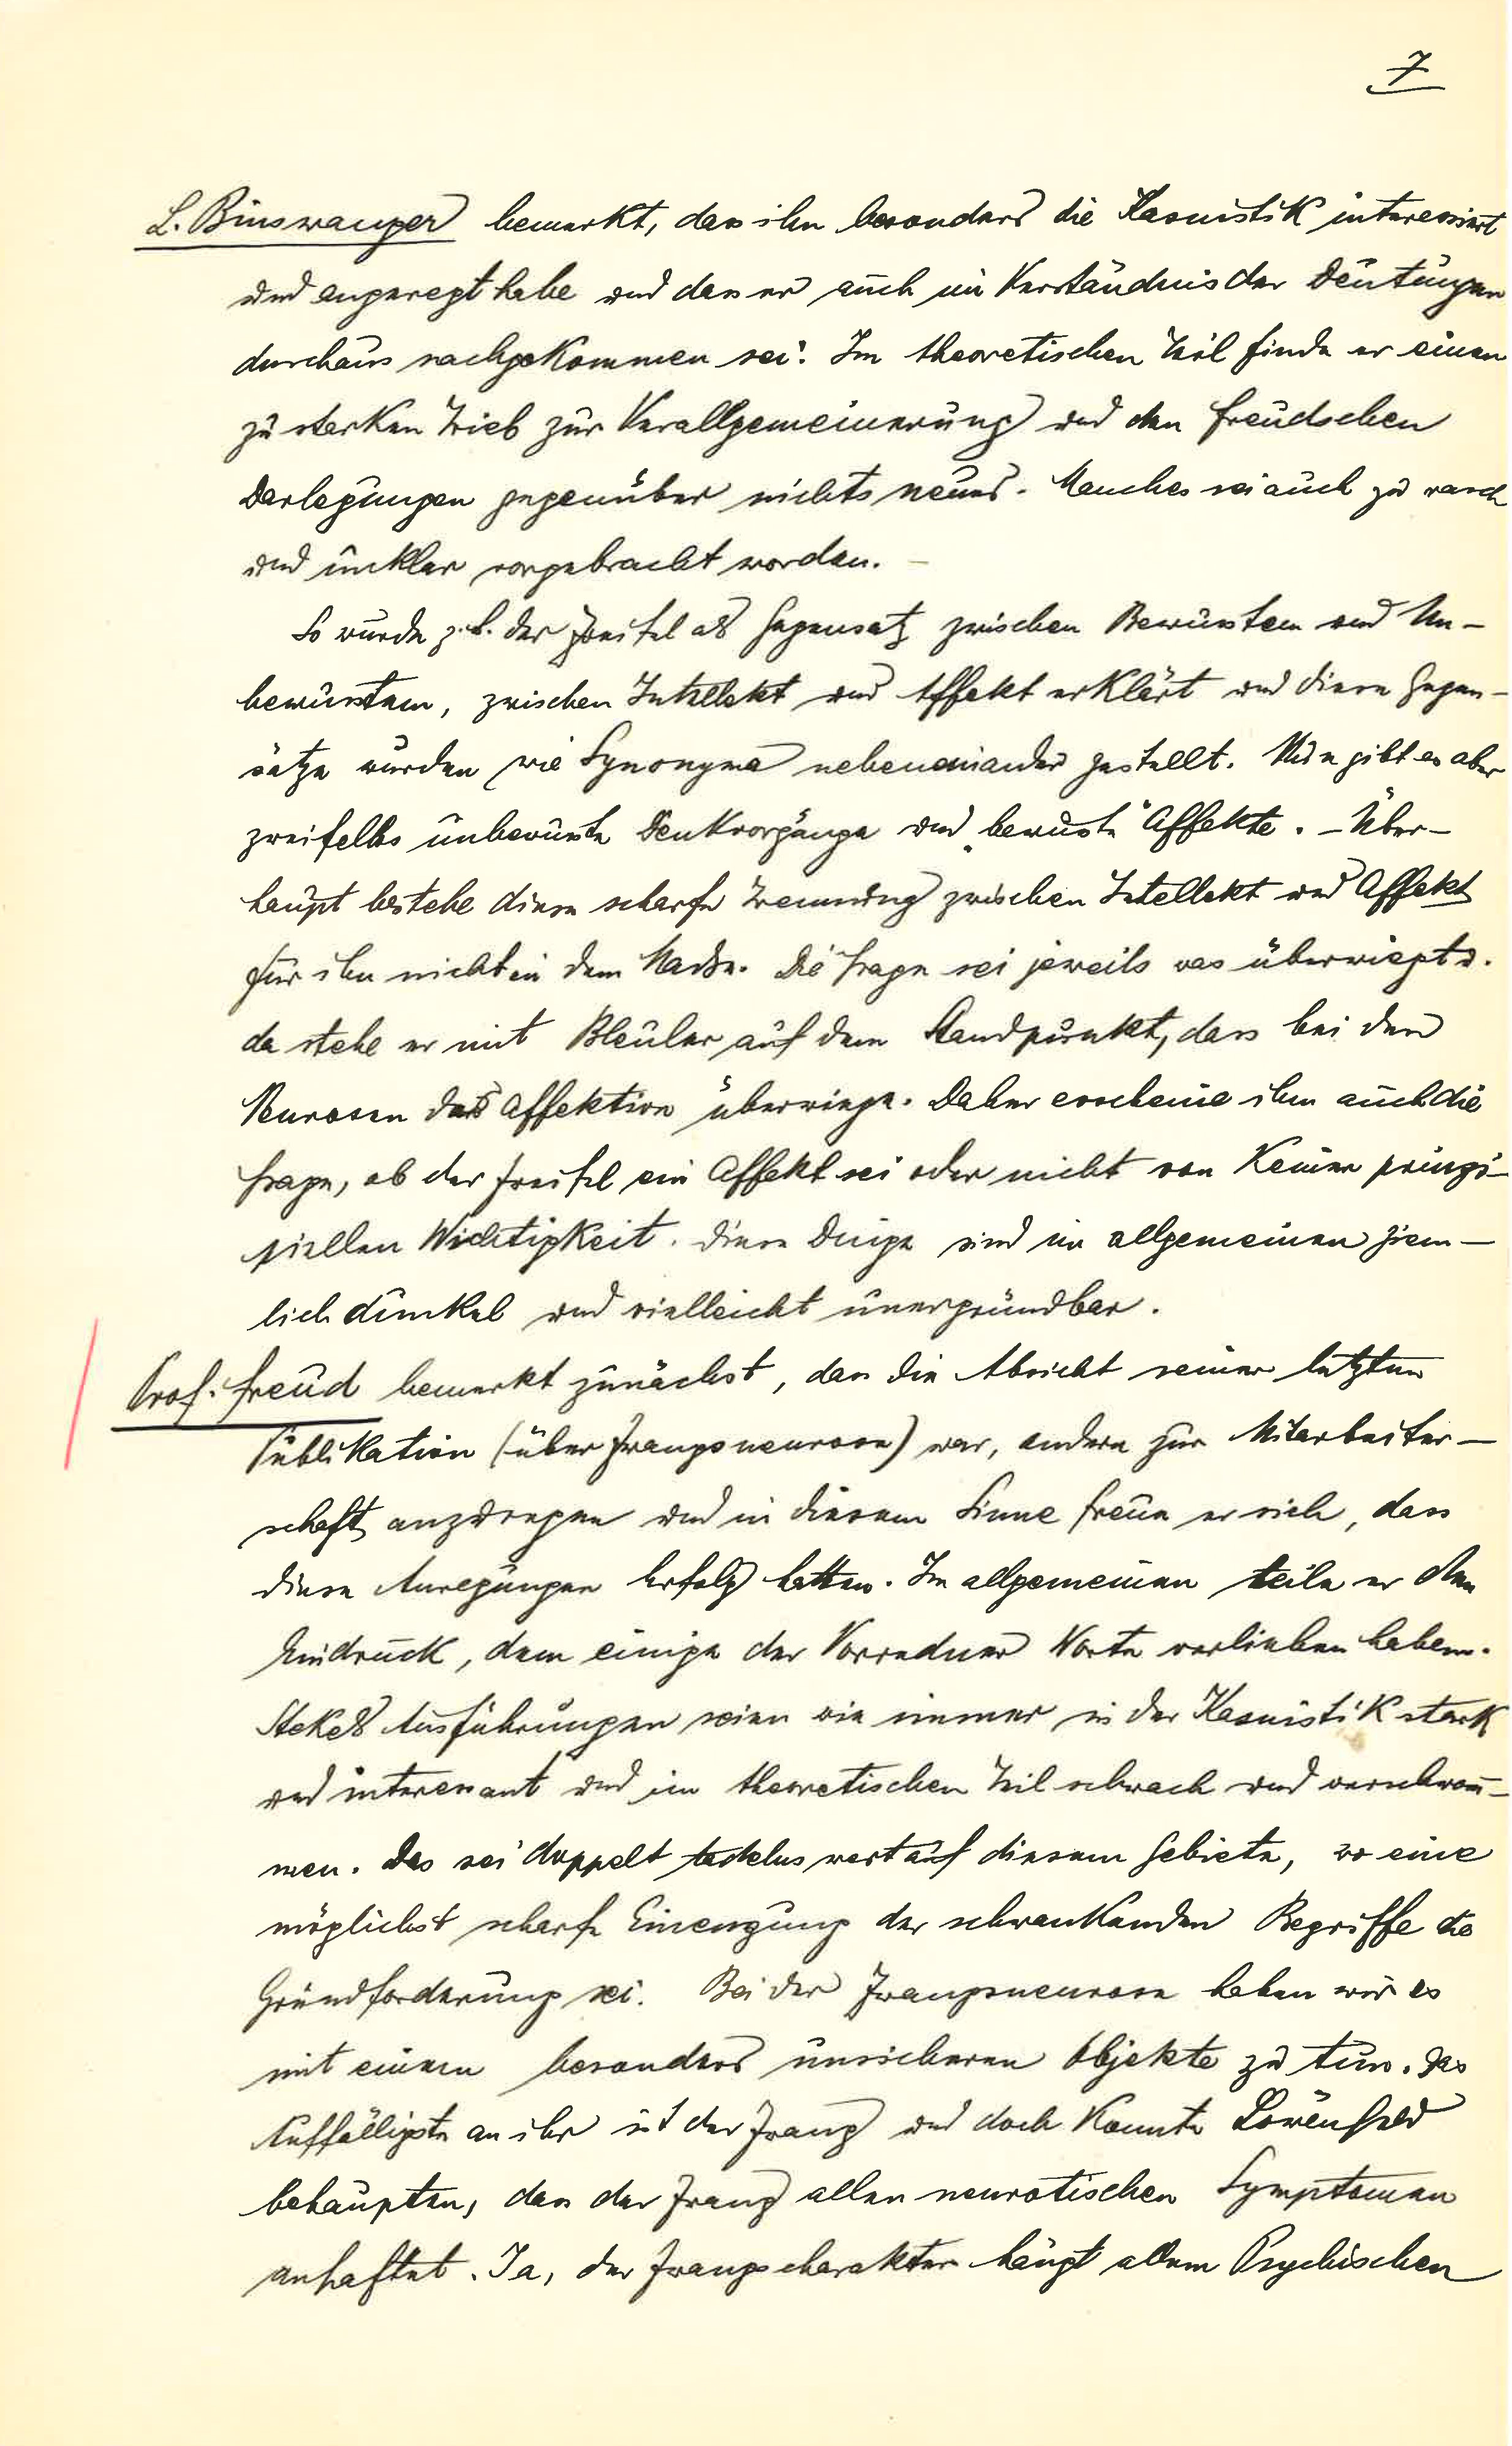 7
L. Binswanger bemerkt, dass ihn besonders die Kasuistik interessiert
und angeregt habe und dass er auch im Verständnis der Deutungen
durchaus nachgekommen sei. Im theoretischen Teil finde er einen
zu starken Trieb zur Verallgemeinerung und den Freudschen
Darlegungen gegenüber nichts neues. Manches sei auch zu rasch
und unklar vorgebracht worden. –
So wurde z.B. der Zweifel als Gegensatz zwischen Bewusstem und Un-
bewusstem, zwischen Intellekt und Affekt erklärt und diese Gegen-
sätze wurden wie Synonyma nebeneinander gestellt. Nun gibt es aber
zweifellos unbewusste Denkvorgänge und „bewusste" Affekte. – Über-
haupt bestehe diese scharfe Trennung zwischen Intellekt und Affekt
für ihn nicht in dem Maße. Die Frage sei jeweils was überwiegt u.
da stehe er mit Bleuler auf dem Standpunkt, dass bei den
Neurosen das Affektive überwiege. Daher erscheine ihm auch die
Frage, ob der Zweifel ein Affekt sei oder nicht von keiner prinzi-
piellen Wichtigkeit. Diese Dinge sind im allgemeinen ziem-
lich dunkel und vielleicht unergründbar.
Prof. Freud bemerkt zunächst, dass die Absicht seiner letzten
Publikation (über Zwangsneurose) war, andere zur Mitarbeiter-
schaft anzuregen und in diesem Sinne freue er sich, dass
diese Anregungen Erfolg hatten. Im allgemeinen teile er den
Eindruck, dem einige der Vorredner Worte verliehen haben.
Stekels Ausführungen seien wie immer in der Kasuistik stark
und interessant und im theoretischen Teil schwach und verschwom-
men. Das sei doppelt tadelnswert auf diesem Gebiete, wo eine
möglichst scharfe Einengung der schwankenden Begriffe die
Grundforderung sei. Bei der Zwangsneurose haben wir es
mit einem besonders unsicheren Objekte zu tun. Das
Auffälligste an ihr ist der Zwang und doch konnte Löwenfeld
behaupten, dass der Zwang allen neurotischen Symptomen
anhaftet. Ja, der Zwangscharakter hängt allem Psychischen